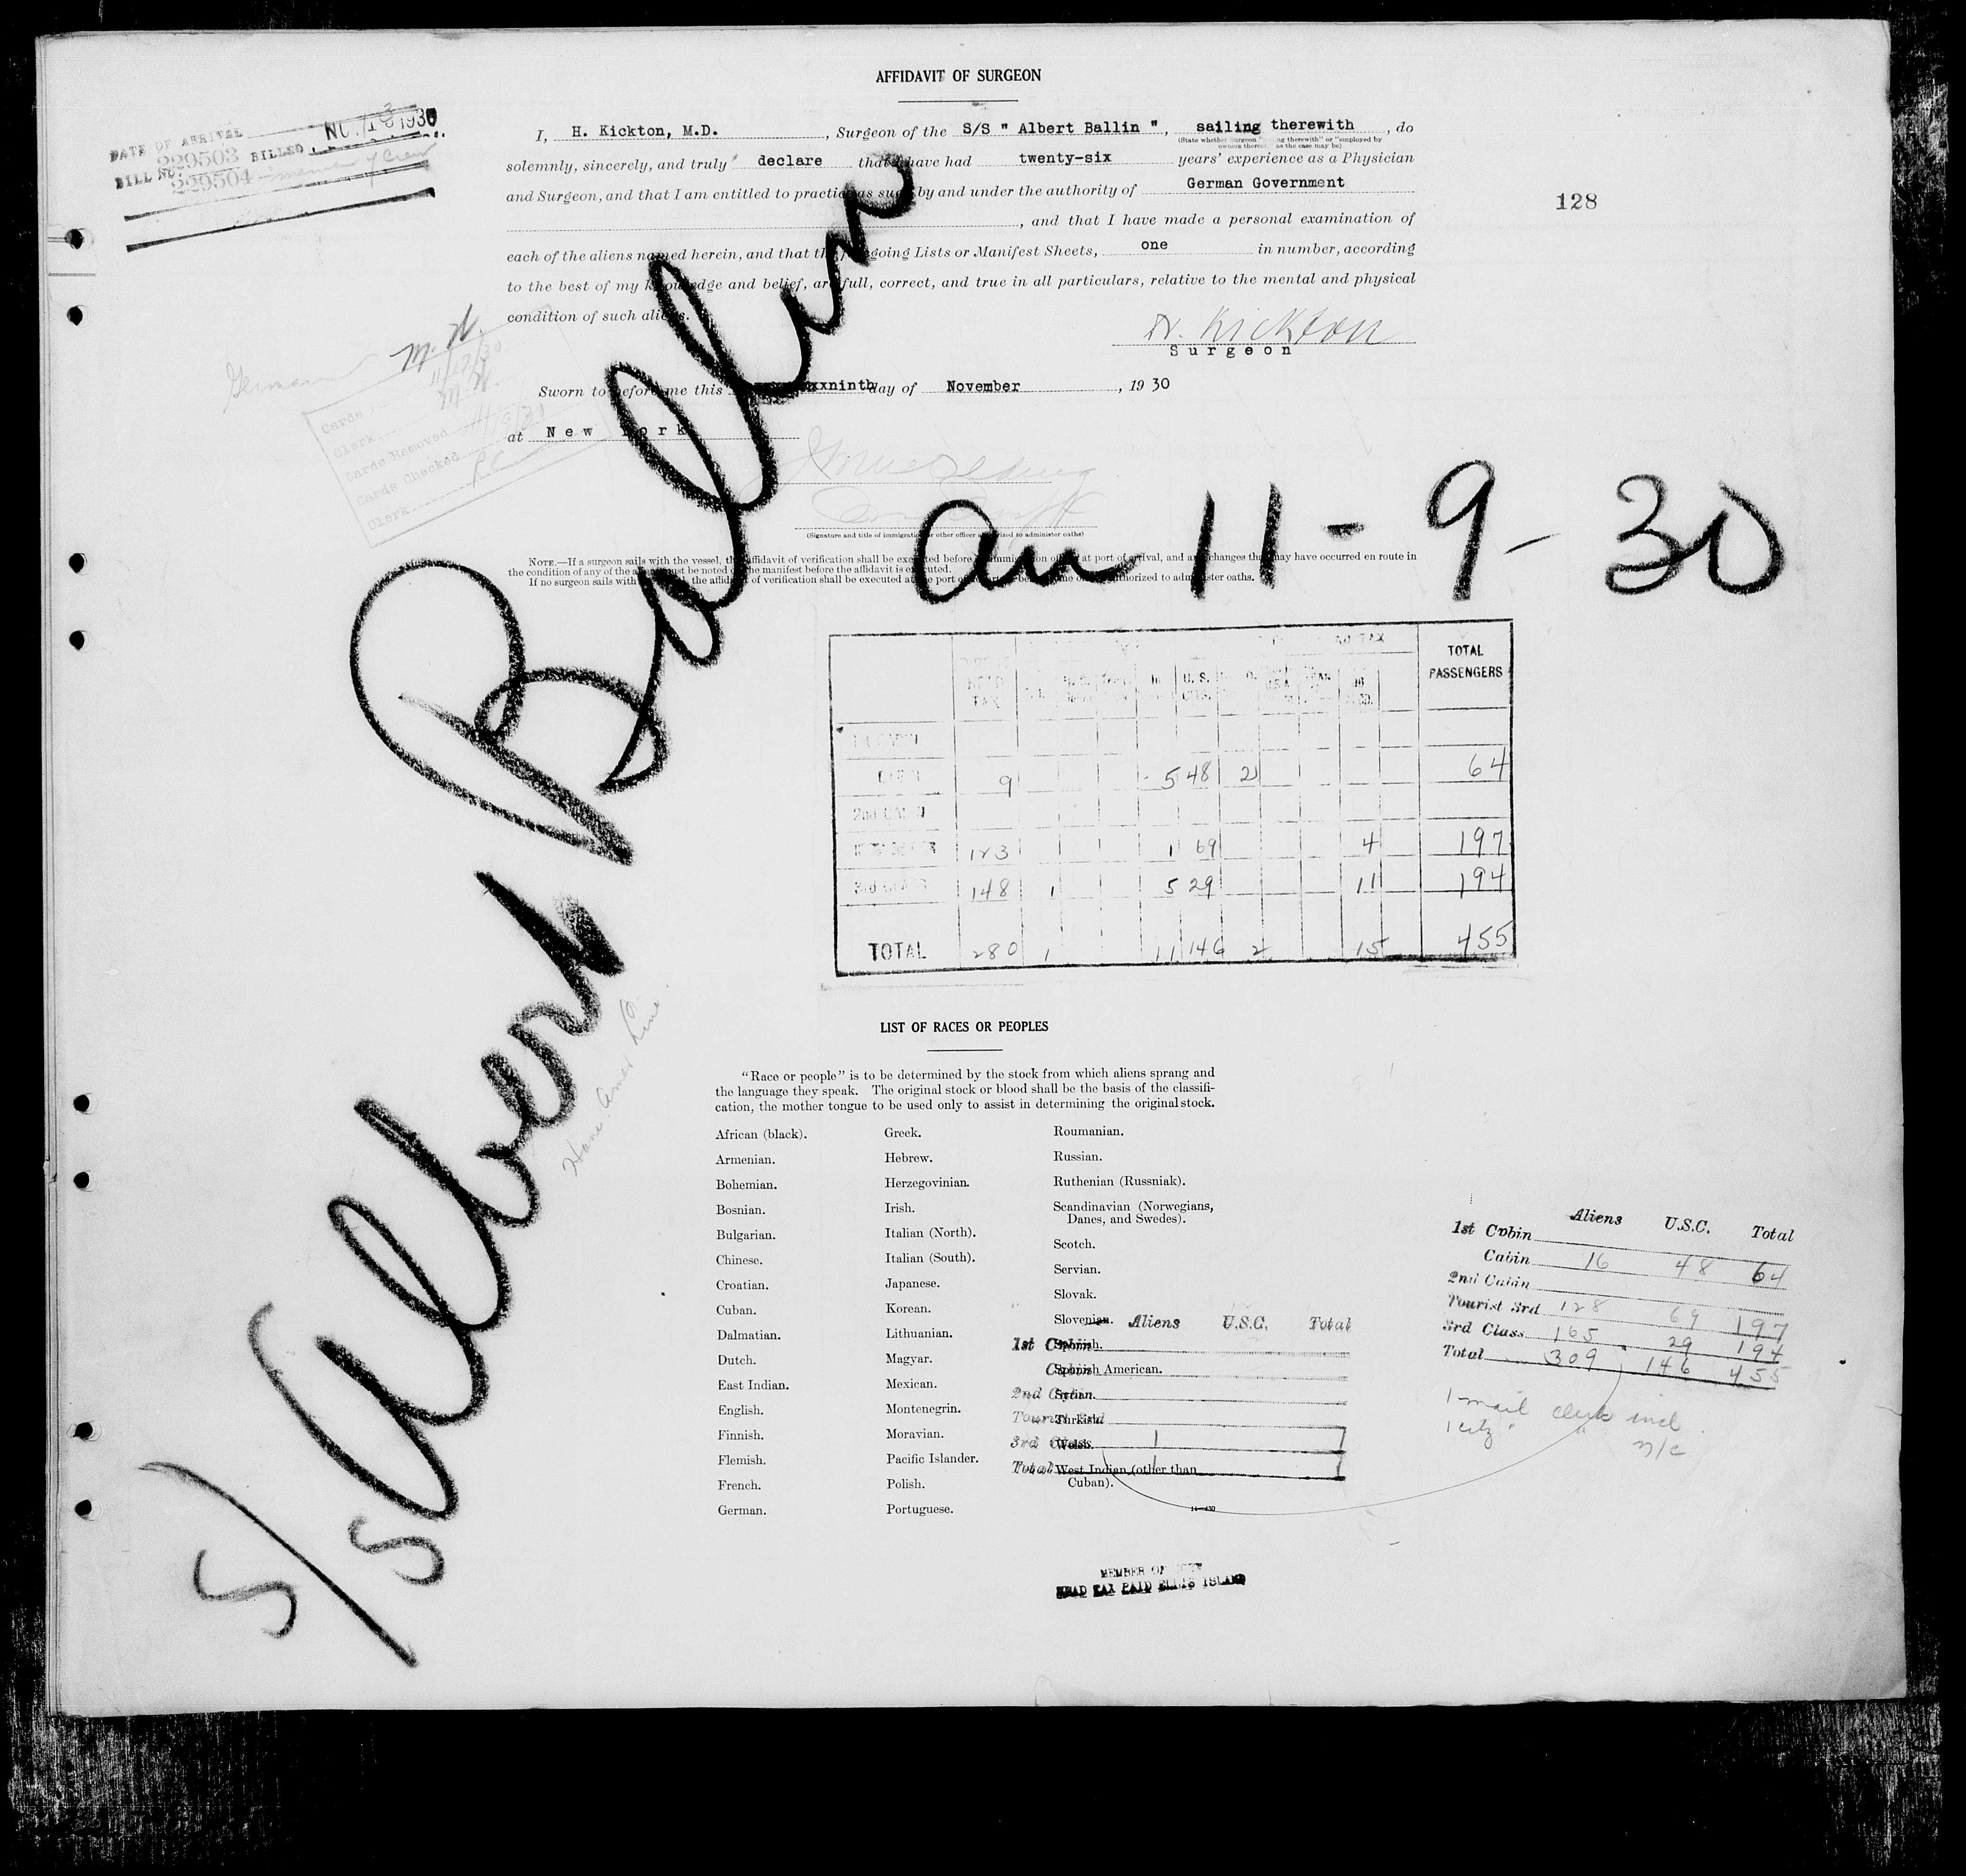 AFFIDAVIT OF SURGEON
DATE OF ARRIVAL 1930
BILL NO. 229503 BILLSO
229504 member of Crew
I, H. Kickton, M.D. , Surgeon of the S/S " Albert Ballin ", sailing therewith , do
(State whether Surgeon "sailing therewith" or "employed by
owners thereof, as the case may be)
solemnly, sincerely, and truly declare that I have had twenty-six years' experience as a Physician
and Surgeon, and that I am entitled to practice as such by and under the authority of German Government
128
, and that I have made a personal examination of
each of the aliens named herein, and that the foregoing Lists or Manifest Sheets, one in number, according
to the best of my knowledge and belief, are full, correct, and true in all particulars, relative to the mental and physical
condition of such aliens.
Kickton
Surgeon
German
M. H.
11/12/30
Cards
Clerk
Cards Removed
Cards Checked
Clerk
Sworn to before me this ninth day of November , 19 30
at New York
(Signature and title of immigration or other officer authorized to administer oaths)
NOTE.—If a surgeon sails with the vessel, the affidavit of verification shall be executed before immigration officer at port of arrival, and any changes that may have occurred en route in
the condition of any of the aliens must be noted on the manifest before the affidavit is executed.
If no surgeon sails with the affidavit of verification shall be executed at the port authorized to administer oaths.
S/S Albert Ballin
Arr 11-9-30
Ham Amer Line
HEAD TAX U. S. CITS. TOTAL PASSENGERS
1st CABIN
CABIN 9 5 48 2 64
2nd CABIN
123 1 69 4 197
3rd CLASS 148 1 5 29 11 194
TOTAL 280 1 11 146 2 15 455
LIST OF RACES OR PEOPLES
"Race or people" is to be determined by the stock from which aliens sprang and
the language they speak. The original stock or blood shall be the basis of the classifi-
cation, the mother tongue to be used only to assist in determining the original stock.
African (black).
Armenian.
Bohemian.
Bosnian.
Bulgarian.
Chinese.
Croatian.
Cuban.
Dalmatian.
Dutch.
East Indian.
English.
Finnish.
Flemish.
French.
German.
Greek.
Hebrew.
Herzegovinian.
Irish.
Italian (North).
Italian (South).
Japanese.
Korean.
Lithuanian.
Magyar.
Mexican.
Montenegrin.
Moravian.
Pacific Islander.
Polish.
Portuguese.
Roumanian.
Russian.
Ruthenian (Russniak).
Scandinavian (Norwegians,
Danes, and Swedes).
Scotch.
Servian.
Slovak.
Slovenian.
Spanish.
Spanish American.
Syrian.
Turkish.
Welsh.
West Indian (other than
Cuban).
Aliens U.S.C. Total
1st Cabin
Cabin
2nd Cabin
Tourist 3rd
3rd Class 1 1
Total 1 1
Aliens U.S.C. Total
1st Cabin
Cabin 16 48 64
2nd Cabin
Tourist 3rd 128 69 197
3rd Class 165 29 194
Total 309 146 455
1 mail clerk incl.
1 city " " n/c
MEMBER OF CREW
HEAD TAX PAID ELLIS ISLAND